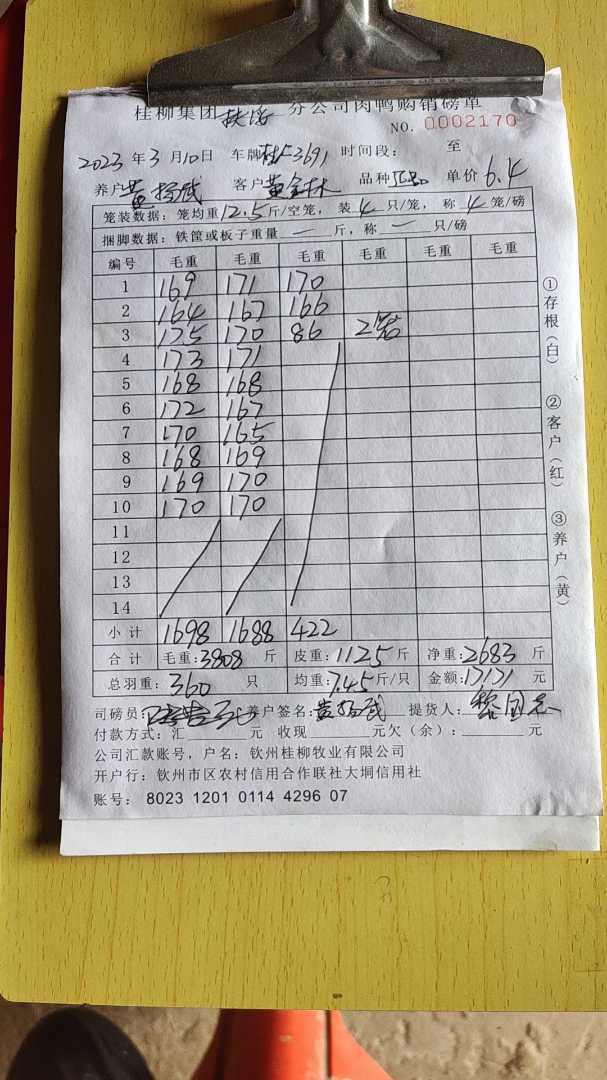 桂柳集团扶绥分公司肉鸭购销磅单
NO. 0002170
2023年3月10日 车牌桂L3691 时间段: 至
养户黄扬武 客户黄金林 品种 单价6.4
笼装数据: 笼均重12.5斤/空笼, 装4只/笼, 称4笼/磅
捆脚数据: 铁筐或板子重量—斤, 称—只/磅
编号 毛重 毛重 毛重 毛重 毛重 毛重
1 169 171 170
2 164 167 166
3 175 170 86 2笼
4 173 171
5 168 168
6 172 167
7 170 165
8 168 169
9 169 170
10 170 170
11
12
13
14
小计 1698 1688 422
合计 毛重:3808斤 皮重:1125斤 净重:2683斤
总羽重:360只 均重:7.45斤/只 金额:17171元
司磅员: 养户签名:黄扬武 提货人:
付款方式:汇 元 收现 元欠(余): 元
公司汇款账号, 户名: 钦州桂柳牧业有限公司
开户行: 钦州市区农村信用合作联社大垌信用社
账号: 8023 1201 0114 4296 07
①存根(白) ②客户(红) ③养户(黄)